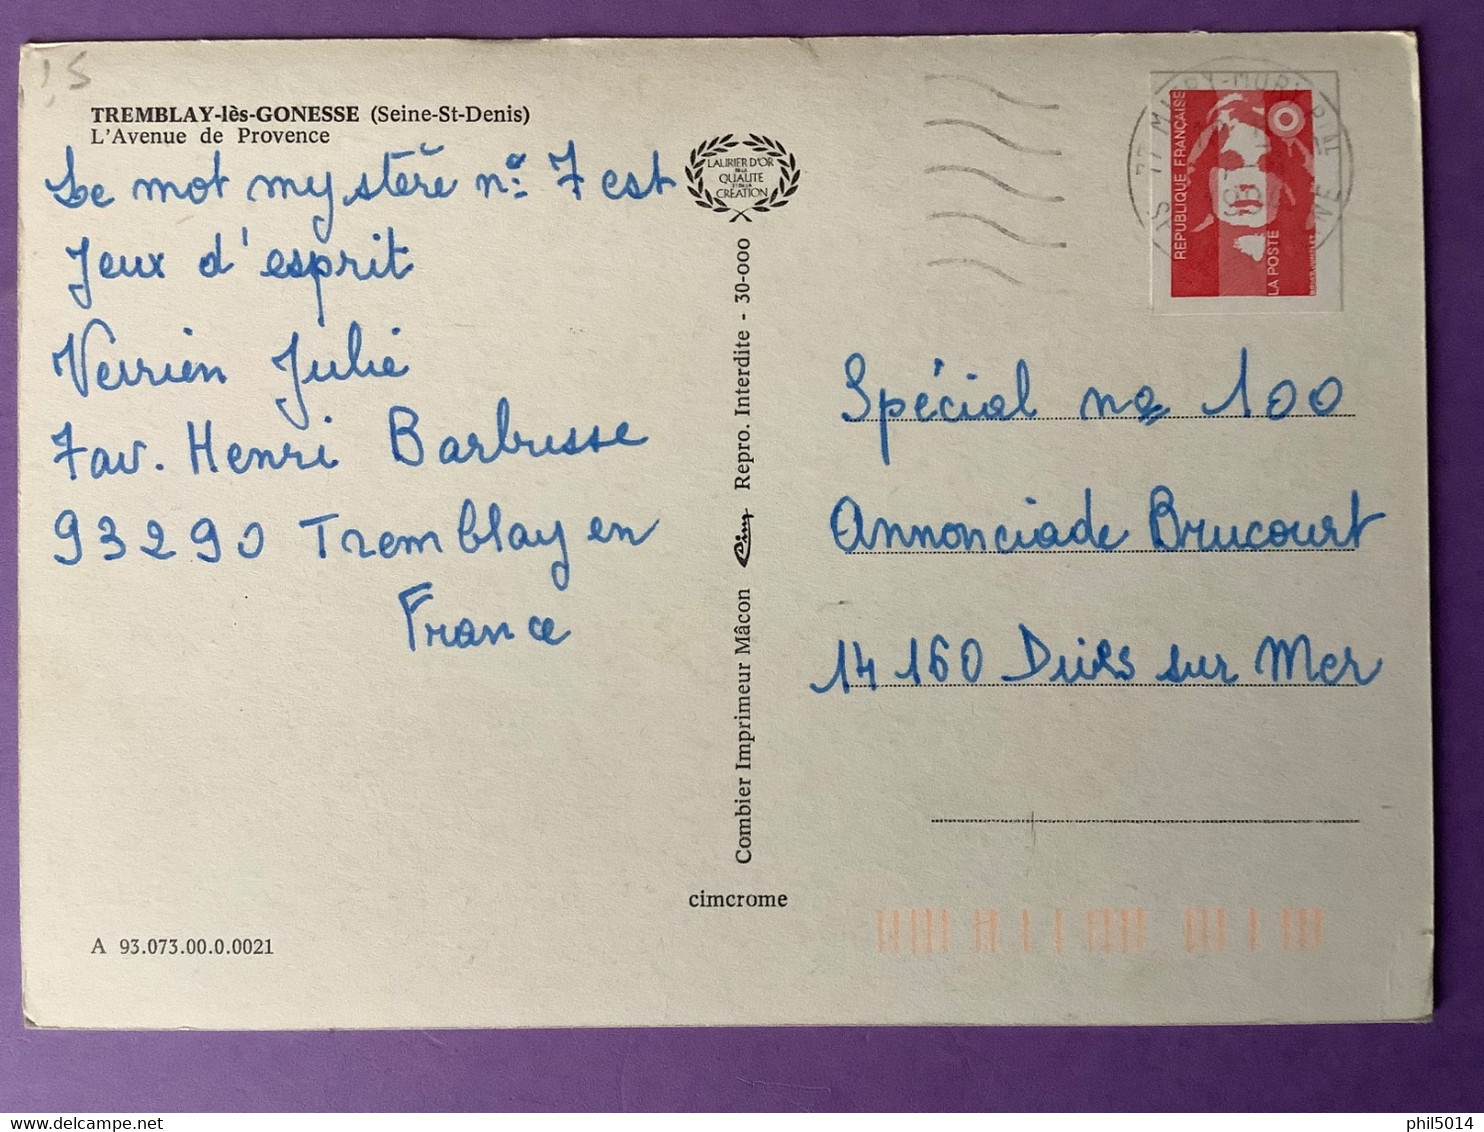 1,5
TREMBLAY-lès-GONESSE (Seine-St-Denis)
L'Avenue de Provence
Le mot mystère nº 7 est
Jeux d'esprit
Verrien Julie
7 av. Henri Barbusse
93290 Tremblay en
France
LAURIER D'OR
DE LA
QUALITE
ET DE LA
CREATION
Combier Imprimeur Mâcon Cim Repro. Interdite - 30-000
cimcrome
A 93.073.00.0.0021
REPUBLIQUE FRANÇAISE
LA POSTE
Spécial nº 100
Annonciade Brucourt
14160 Dives sur Mer
phil5014